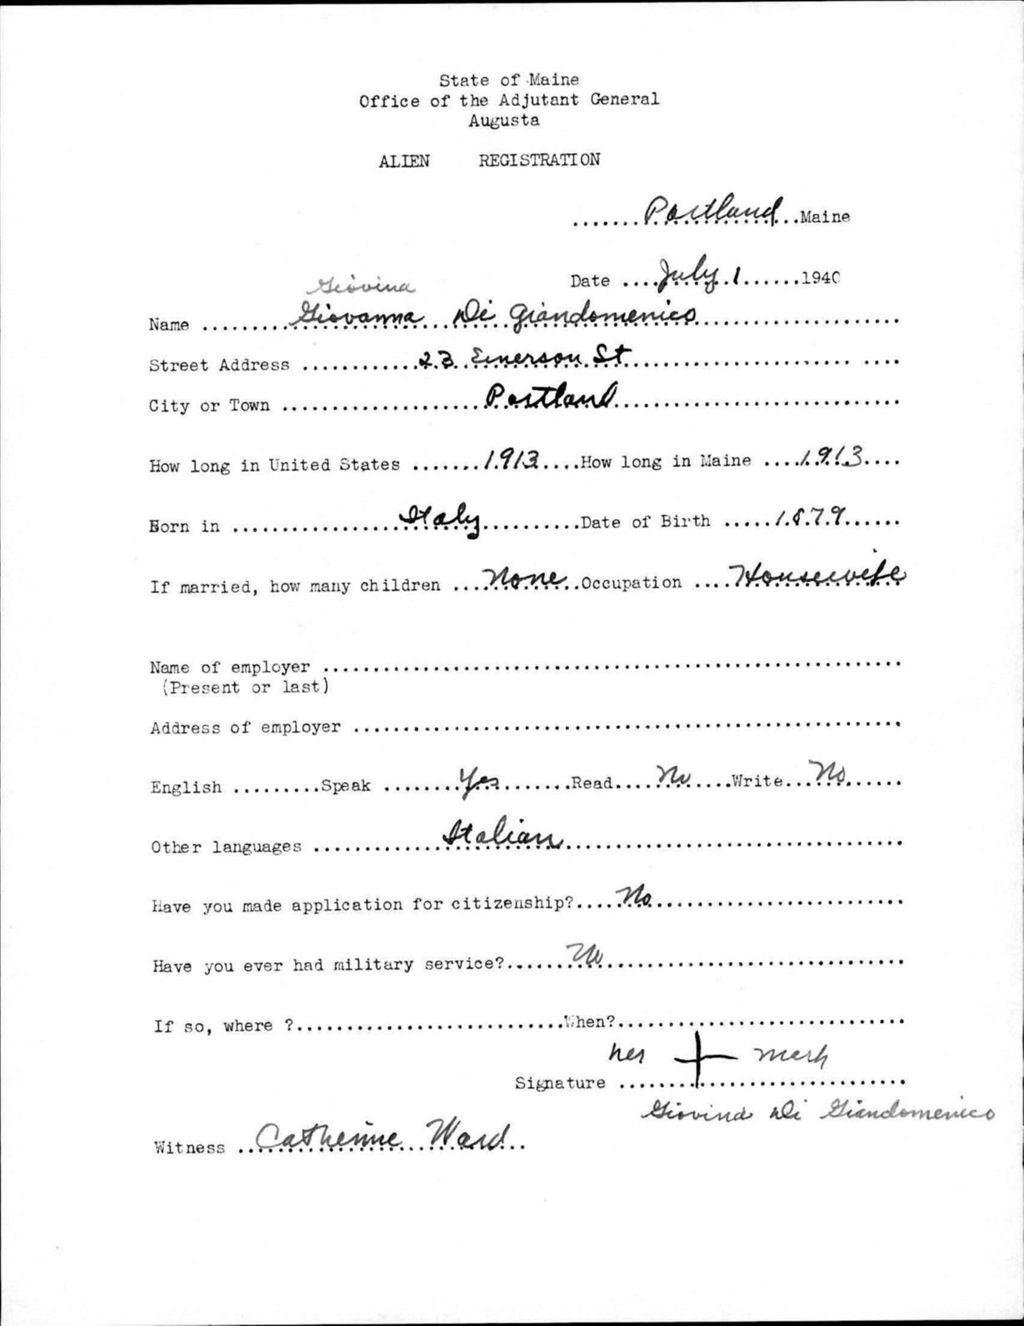 State of Maine
Office of the Adjutant General
Augusta
ALIEN REGISTRATION
.......Portland...Maine
Date ....July 1......1940
Giovina
Name .........Giovanna Di Giandomenico.....................
Street Address ............23 Emerson St........................... ....
City or Town ....................Portland.............................
How long in United States .......1913....How long in Maine ....1913....
Born in .................Italy..........Date of Birth .....1879......
If married, how many children ...None..Occupation ....Housewife
Name of employer ..........................................................
(Present or last)
Address of employer .......................................................
English .........Speak ........Yes........Read....No.....Write...No......
Other languages .............Italian..................................
Have you made application for citizenship?....No..........................
Have you ever had military service?......No...............................
If so, where ?...........................When?.............................
her + mark
Signature .............................
Giovina Di Giandomenico
Witness ..Catherine Ward..